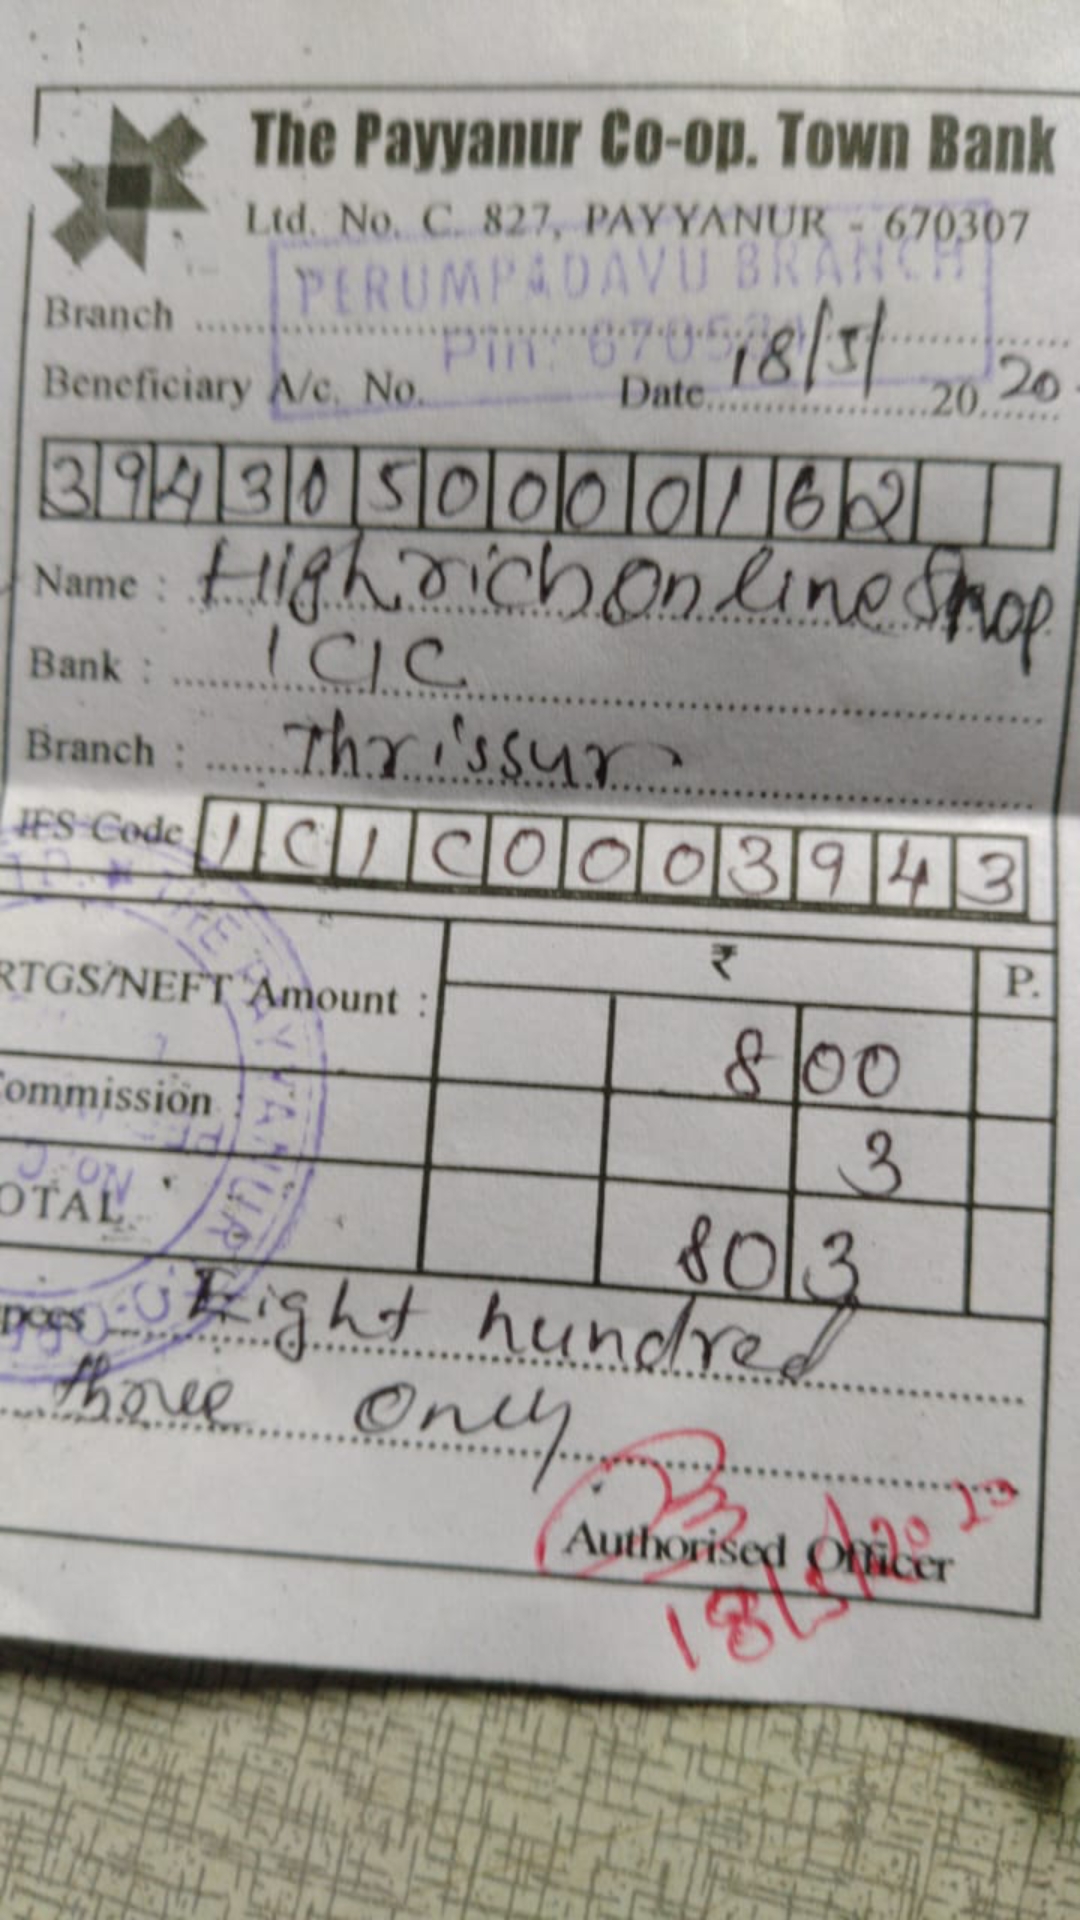 The Payyanur Co-op. Town Bank
Ltd. No. C. 827, PAYYANUR - 670307
PERUMPADAVU BRANCH
Branch
Pin:
Beneficiary A/c. No. Date 18/5/ 2020
3943050000162
Name : Highrich Online Shop
Bank : ICIC
Branch : Thrissur
IFS Code ICIC0003943
₹ P.
RTGS/NEFT Amount : 800
ommission 3
OTAL 803
pees Eight hundred
three only
Authorised Officer
18/5/2020